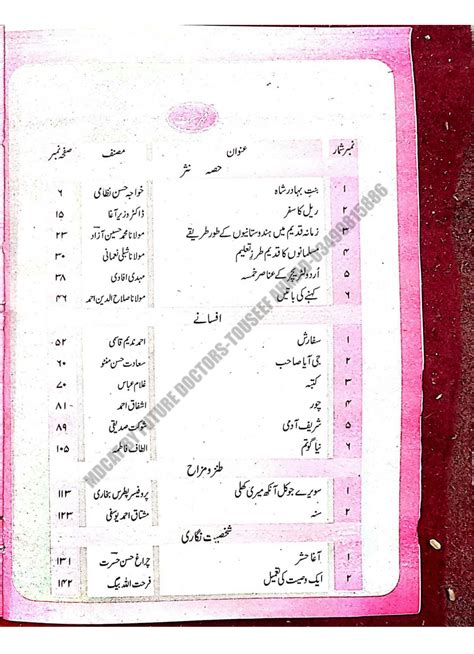 نمبر شمار عنوان مصنف صفحہ نمبر
حصہ نثر
۱ بنتِ بہادر شاہ خواجہ حسن نظامی ۶
۲ ریل کا سفر ڈاکٹر وزیر آغا ۱۵
۳ زمانہ قدیم میں ہندوستانیوں کے طور طریقے مولانا محمد حسین آزاد ۲۳
۴ مسلمانوں کا قدیم طرزِ تعلیم مولانا شبلی نعمانی ۳۰
۵ اُردو لٹریچر کے عناصر خمسہ مہدی افادی ۳۸
۶ کہنے کی باتیں مولانا صلاح الدین احمد ۴۶
افسانے
۱ سفارش احمد ندیم قاسمی ۵۲
۲ جی آیا صاحب سعادت حسن منٹو ۶۰
۳ کتبہ غلام عباس ۷۰
۴ چور اشفاق احمد ۸۱
۵ شریف آدمی شوکت صدیقی ۸۹
۶ نیا گوتم الطاف فاطمہ ۱۰۵
طنز و مزاح
۱ سویرے جو کل آنکھ میری کھلی پروفیسر پطرس بخاری ۱۱۳
۲ سنہ مشتاق احمد یوسفی ۱۲۳
شخصیت نگاری
۱ آغا حشر چراغ حسن حسرت ۱۳۱
۲ ایک وصیت کی تعمیل فرحت اللہ بیگ ۱۴۲